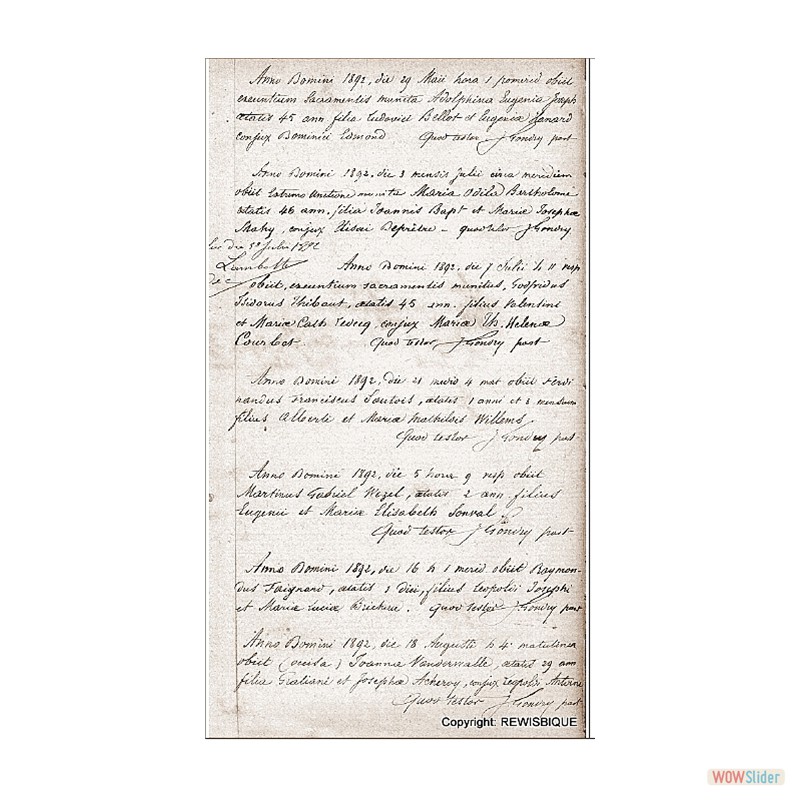 Anno Domini 1892, die 29 Maii hora 1 pomerid obiit
exeuntium Sacramentis munita Adolphina Eugenia Joseph
aetatis 45 ann filia Ludovici Bellot et Eugeniae
conjux Dominici Edmond Quod testor J Gondry past
Anno Domini 1892, die 3 mensis Julii circa meridiem
obiit Extrema Unctione munita Maria Odila Bartholome
aetatis 46 ann. filia Joannis Bapt et Mariae Josephae
Mahy, conjux Elisai Deprêtre - quod testor J Gondry
die 5a Julii 1892
Lambotte
Dec
Anno Domini 1892, die 7 Julii h 11 vesp
obiit, exeuntium sacramentis munitus, Godfridus
Isidorus Thibaut, aetatis 45 ann. filius Valentini
et Mariae Cath conjux Mariae Th. Helenae
Courbet. Quod testor J Gondry past
Anno Domini 1892, die 21 4 mat obiit Ferdi
nandus Franciscus aetatis 1 anni et 8 mensium
filius Alberti et Mariae Mathildis Willems
Quod testor J Gondry past
Anno Domini 1892, die 5 hora 9 vesp obiit
Martinus Gabriel aetatis 2 ann filius
Eugenii et Mariae Elisabeth
Quod testor J Gondry past
Anno Domini 1892, die 16 h 1 merid obiit Raymon-
dus aetatis diei, filius Leopoldi Josephi
et Mariae Luciae Quod testor J. Gondry past
Anno Domini 1892, die 18 Augusti h 4a matutina
obiit (occisa) Joanna Vanderwalle, aetatis 29 ann
filia Gratiani et Josephae conjux Leopoldi Antoine
Quod testor J Gondry past
Copyright: REWISBIQUE
WOWSlider